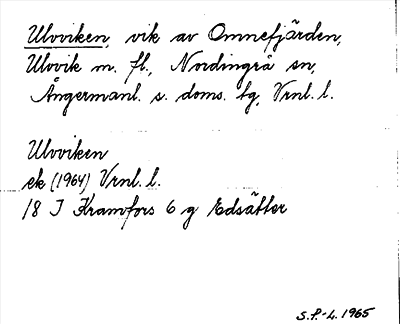 Ulvviken, vik av Omnefjärden,
Ulvvik m. fl., Nordingrå sn,
Ångermanl. s. doms. tg, Vrnl. l.
Ulvviken
ek (1964) Vrnl. l.
18 I Kramfors 6 g Edsätter
S.P.-L. 1965